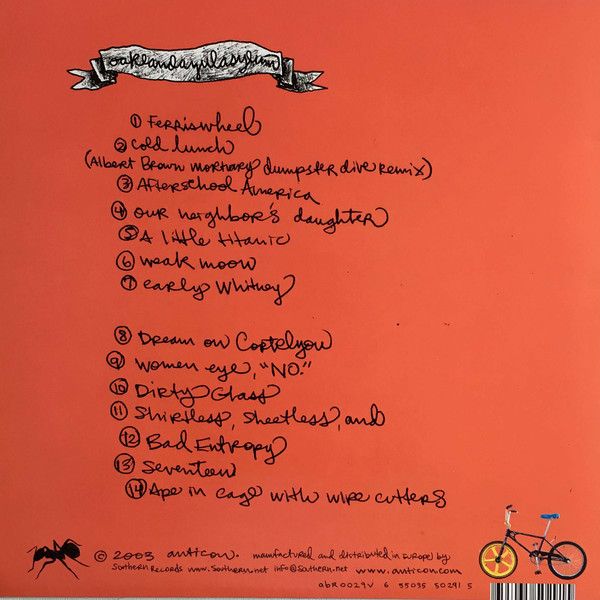 oaklandazulasylum
① Ferriswheel
② Cold lunch
(Albert Brown mortuary dumpster dive remix)
③ Afterschool America
④ our neighbor's daughter
⑤ A little titanic
⑥ weak moon
⑦ early Whitney
⑧ Dream on Cortelyou
⑨ women eye, "NO."
⑩ Dirty Glass
⑪ Shirtless, sheetless, and
⑫ Bad Entropy
⑬ Seventeen
⑭ Ape in cage with wire cutters
© 2003 anticon. manufactured and distributed in Europe by
Southern Records www.Southern.net info@Southern.net www.anticon.com
abR0029V 6 55035 50291 5